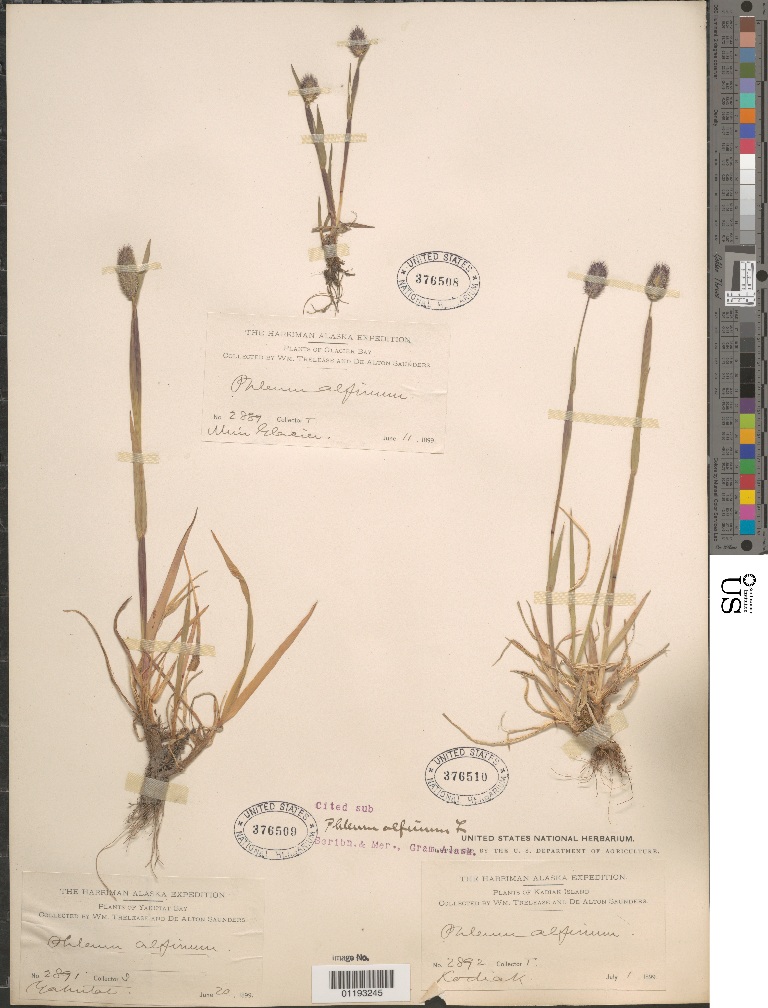 UNITED STATES
376508
NATIONAL HERBARIUM
THE HARRIMAN ALASKA EXPEDITION
PLANTS OF GLACIER BAY
COLLECTED BY WM. TRELEASE AND DE ALTON SAUNDERS
Phleum alpinum
No. 2889 Collector T
Muir Glacier. June 11, 1899.
UNITED STATES
376510
NATIONAL HERBARIUM
UNITED STATES
376509
NATIONAL HERBARIUM
Cited sub
Phleum alpinum L
Scribn. & Mer., Gram. Alask.
UNITED STATES NATIONAL HERBARIUM.
BY THE U. S. DEPARTMENT OF AGRICULTURE.
THE HARRIMAN ALASKA EXPEDITION
PLANTS OF YAKUTAT BAY
COLLECTED BY WM. TRELEASE AND DE ALTON SAUNDERS
Phleum alpinum.
No. 2891 Collector S
Yakutat. June 20, 1899.
THE HARRIMAN ALASKA EXPEDITION.
PLANTS OF KADIAK ISLAND
COLLECTED BY WM. TRELEASE AND DE ALTON SAUNDERS
Phleum alpinum.
No. 2892 Collector T.
Kodiak July 1, 1899.
Image No.
01193245
US